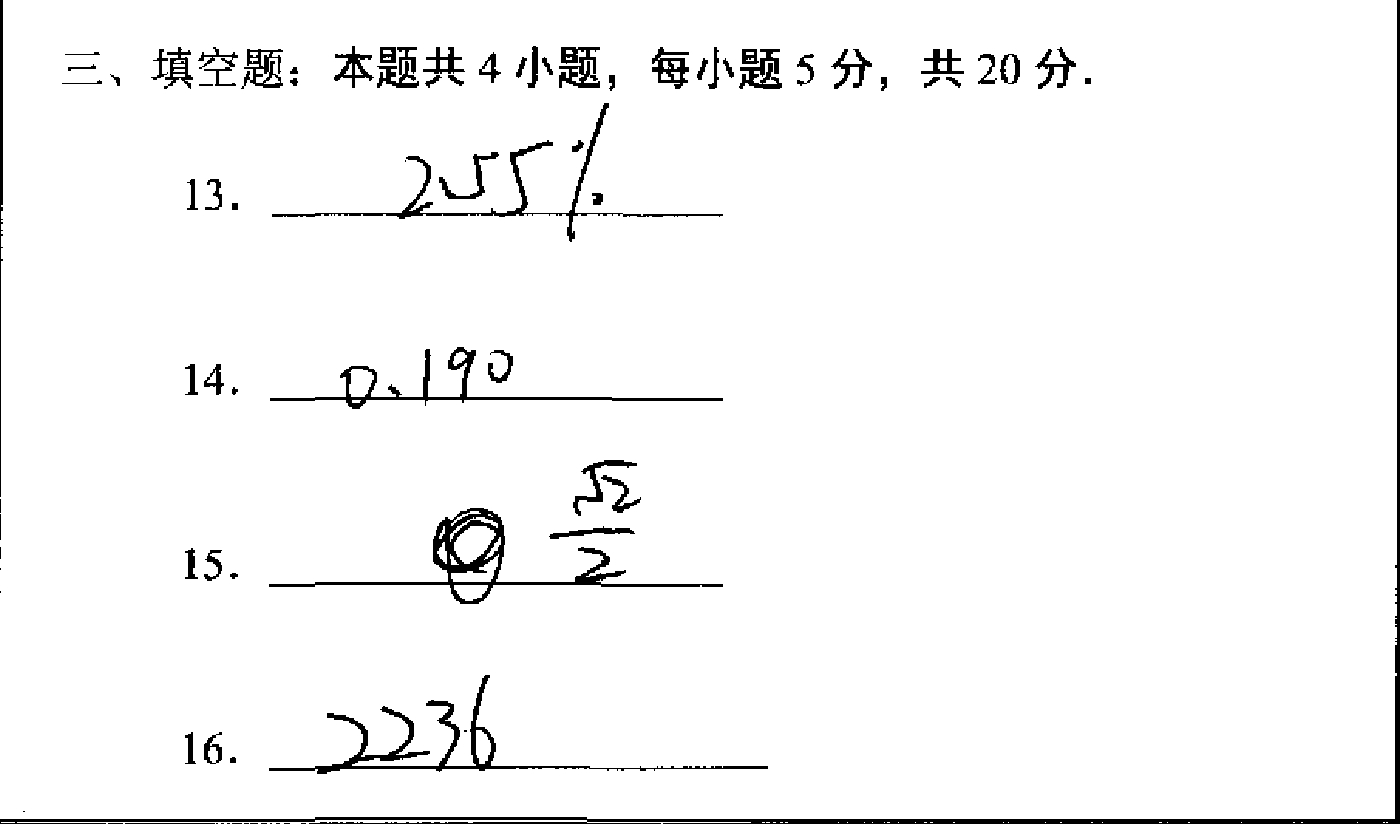 三、填空题：本题共 4 小题，每小题 5 分，共 20 分．
13. 255%
14. 0.190
15. √2/2
16. 2236